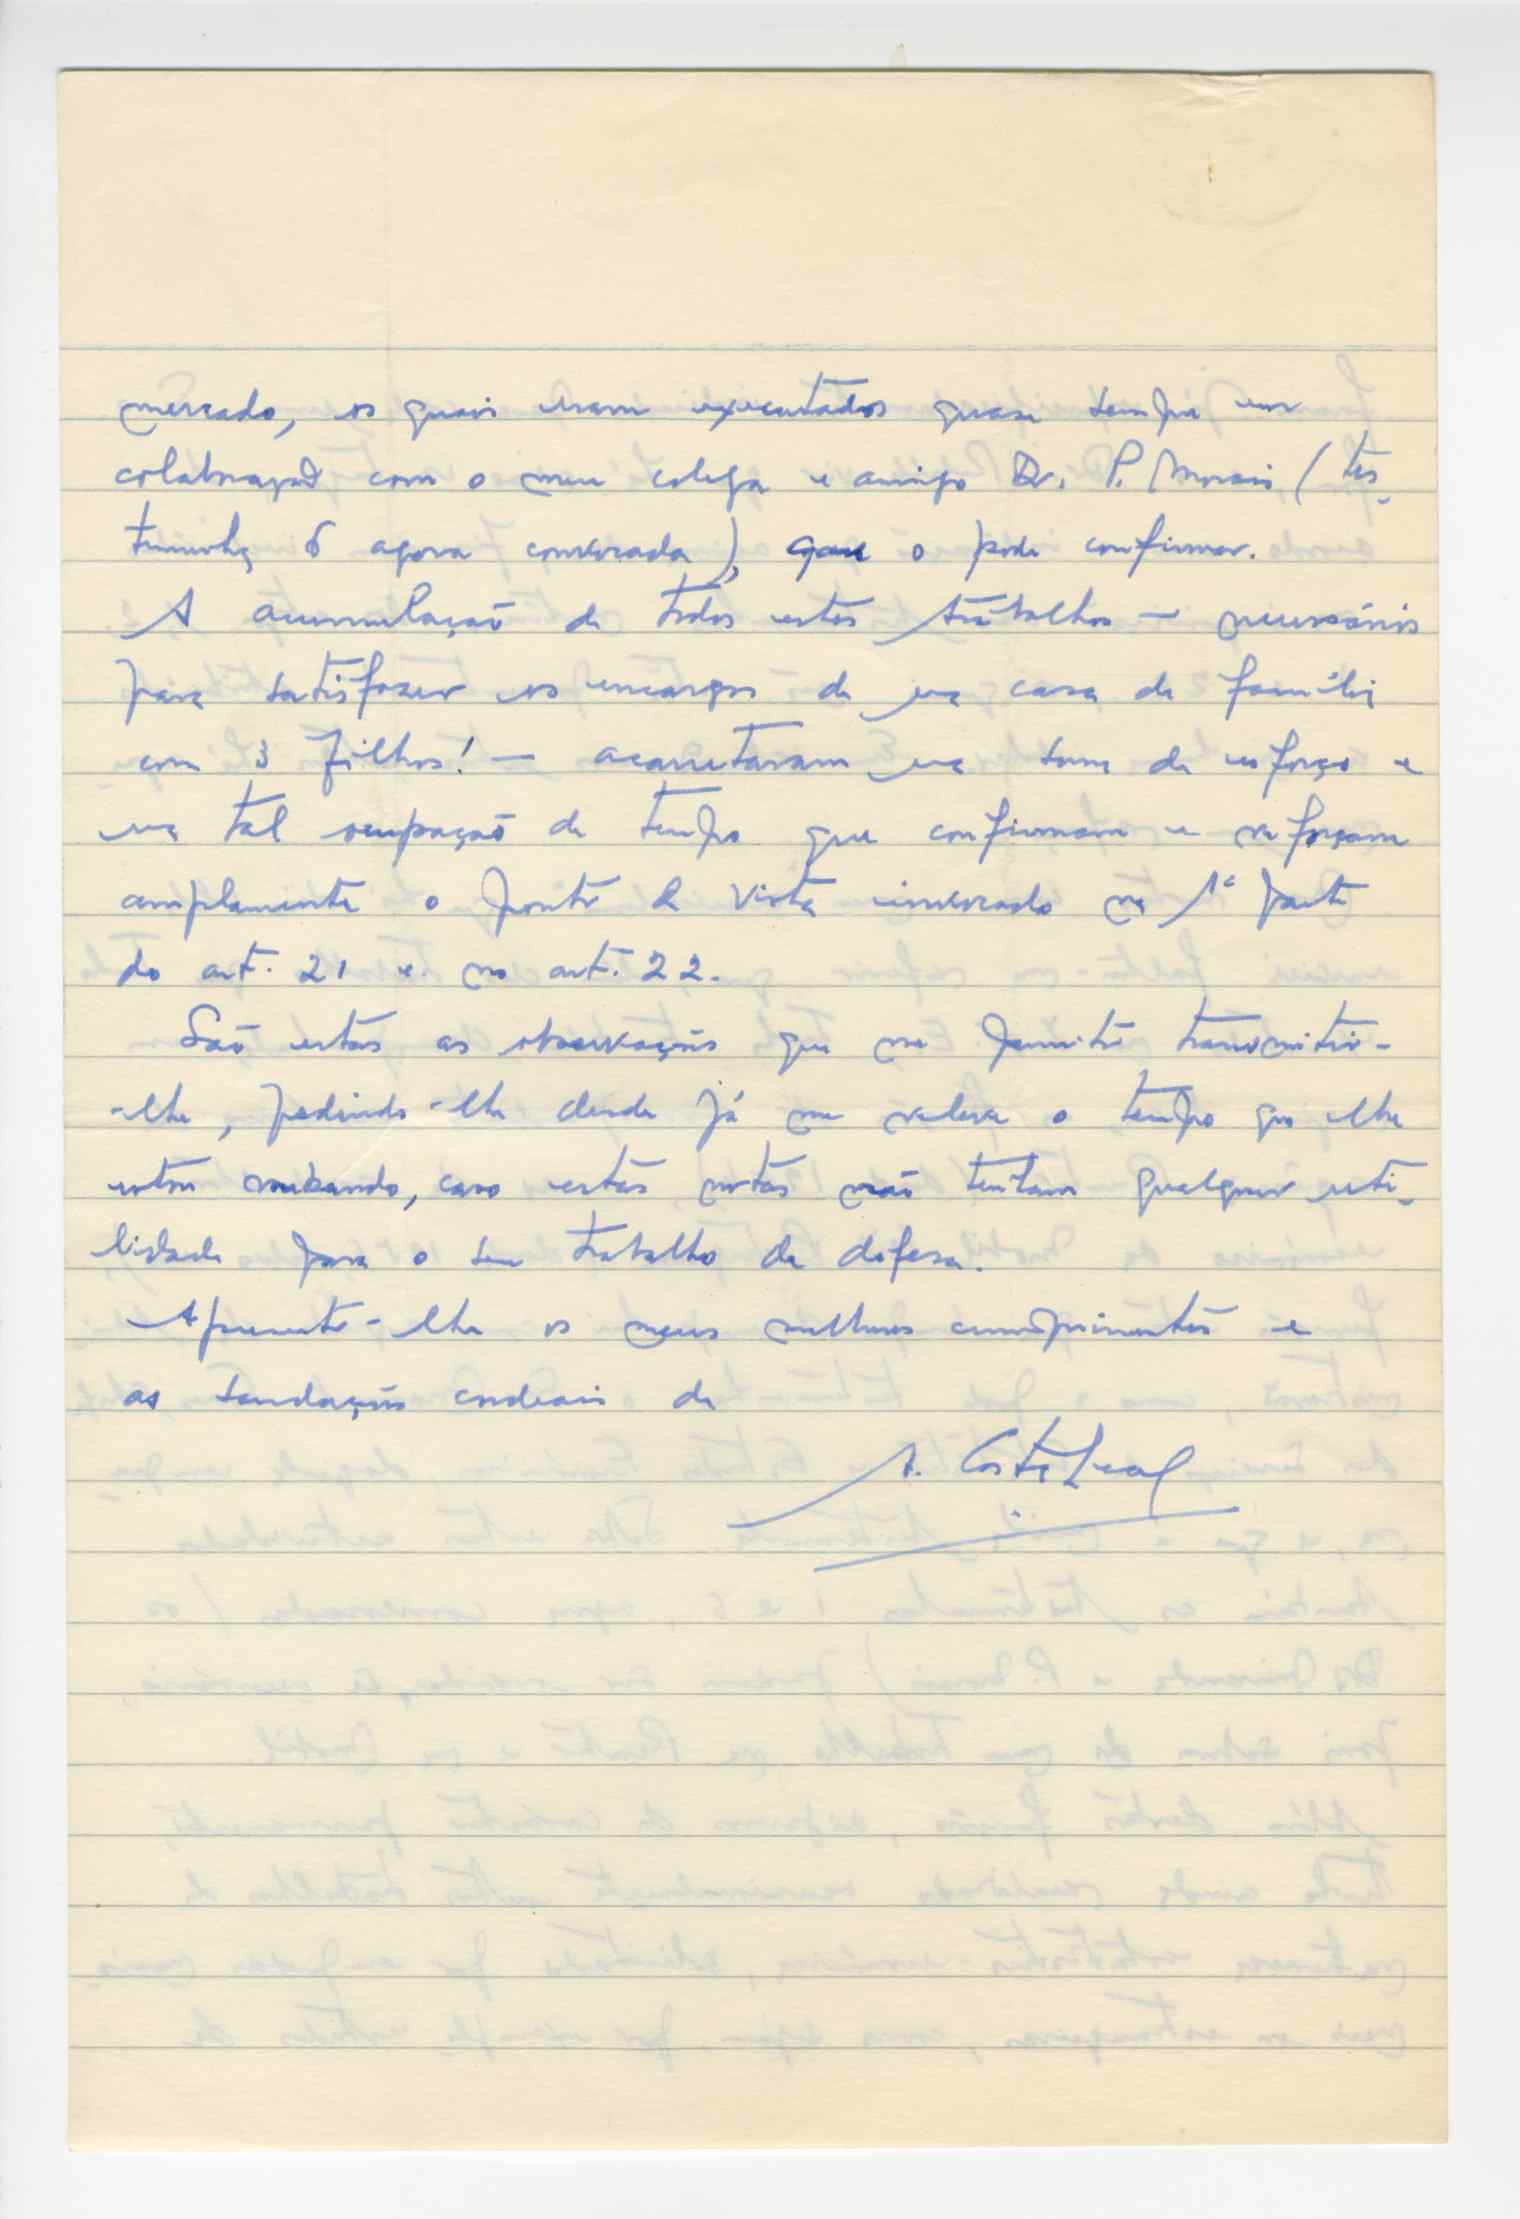 mercado, os quais eram executados quase sempre em
colaboração com o meu colega e amigo Dr. P. Morais (tes-
temunha 6 agora convocada), que o pode confirmar.
A acumulação de todos estes trabalhos — necessários
para satisfazer os encargos de uma casa de família
com 3 filhos! — acarretavam uma soma de esforço e
uma tal ocupação de tempo que confirmam e reforçam
amplamente o ponto de vista invocado na 1ª parte
do art. 21 e no art. 22.
São estas as observações que me permito transmitir-
-lhe, pedindo-lhe desde já me releve o tempo que lhe
estou roubando, caso estas notas não tenham qualquer uti-
lidade para o seu trabalho de defesa.
Apresento-lhe os meus melhores cumprimentos e
as saudações cordeais de
A. Costa Leal